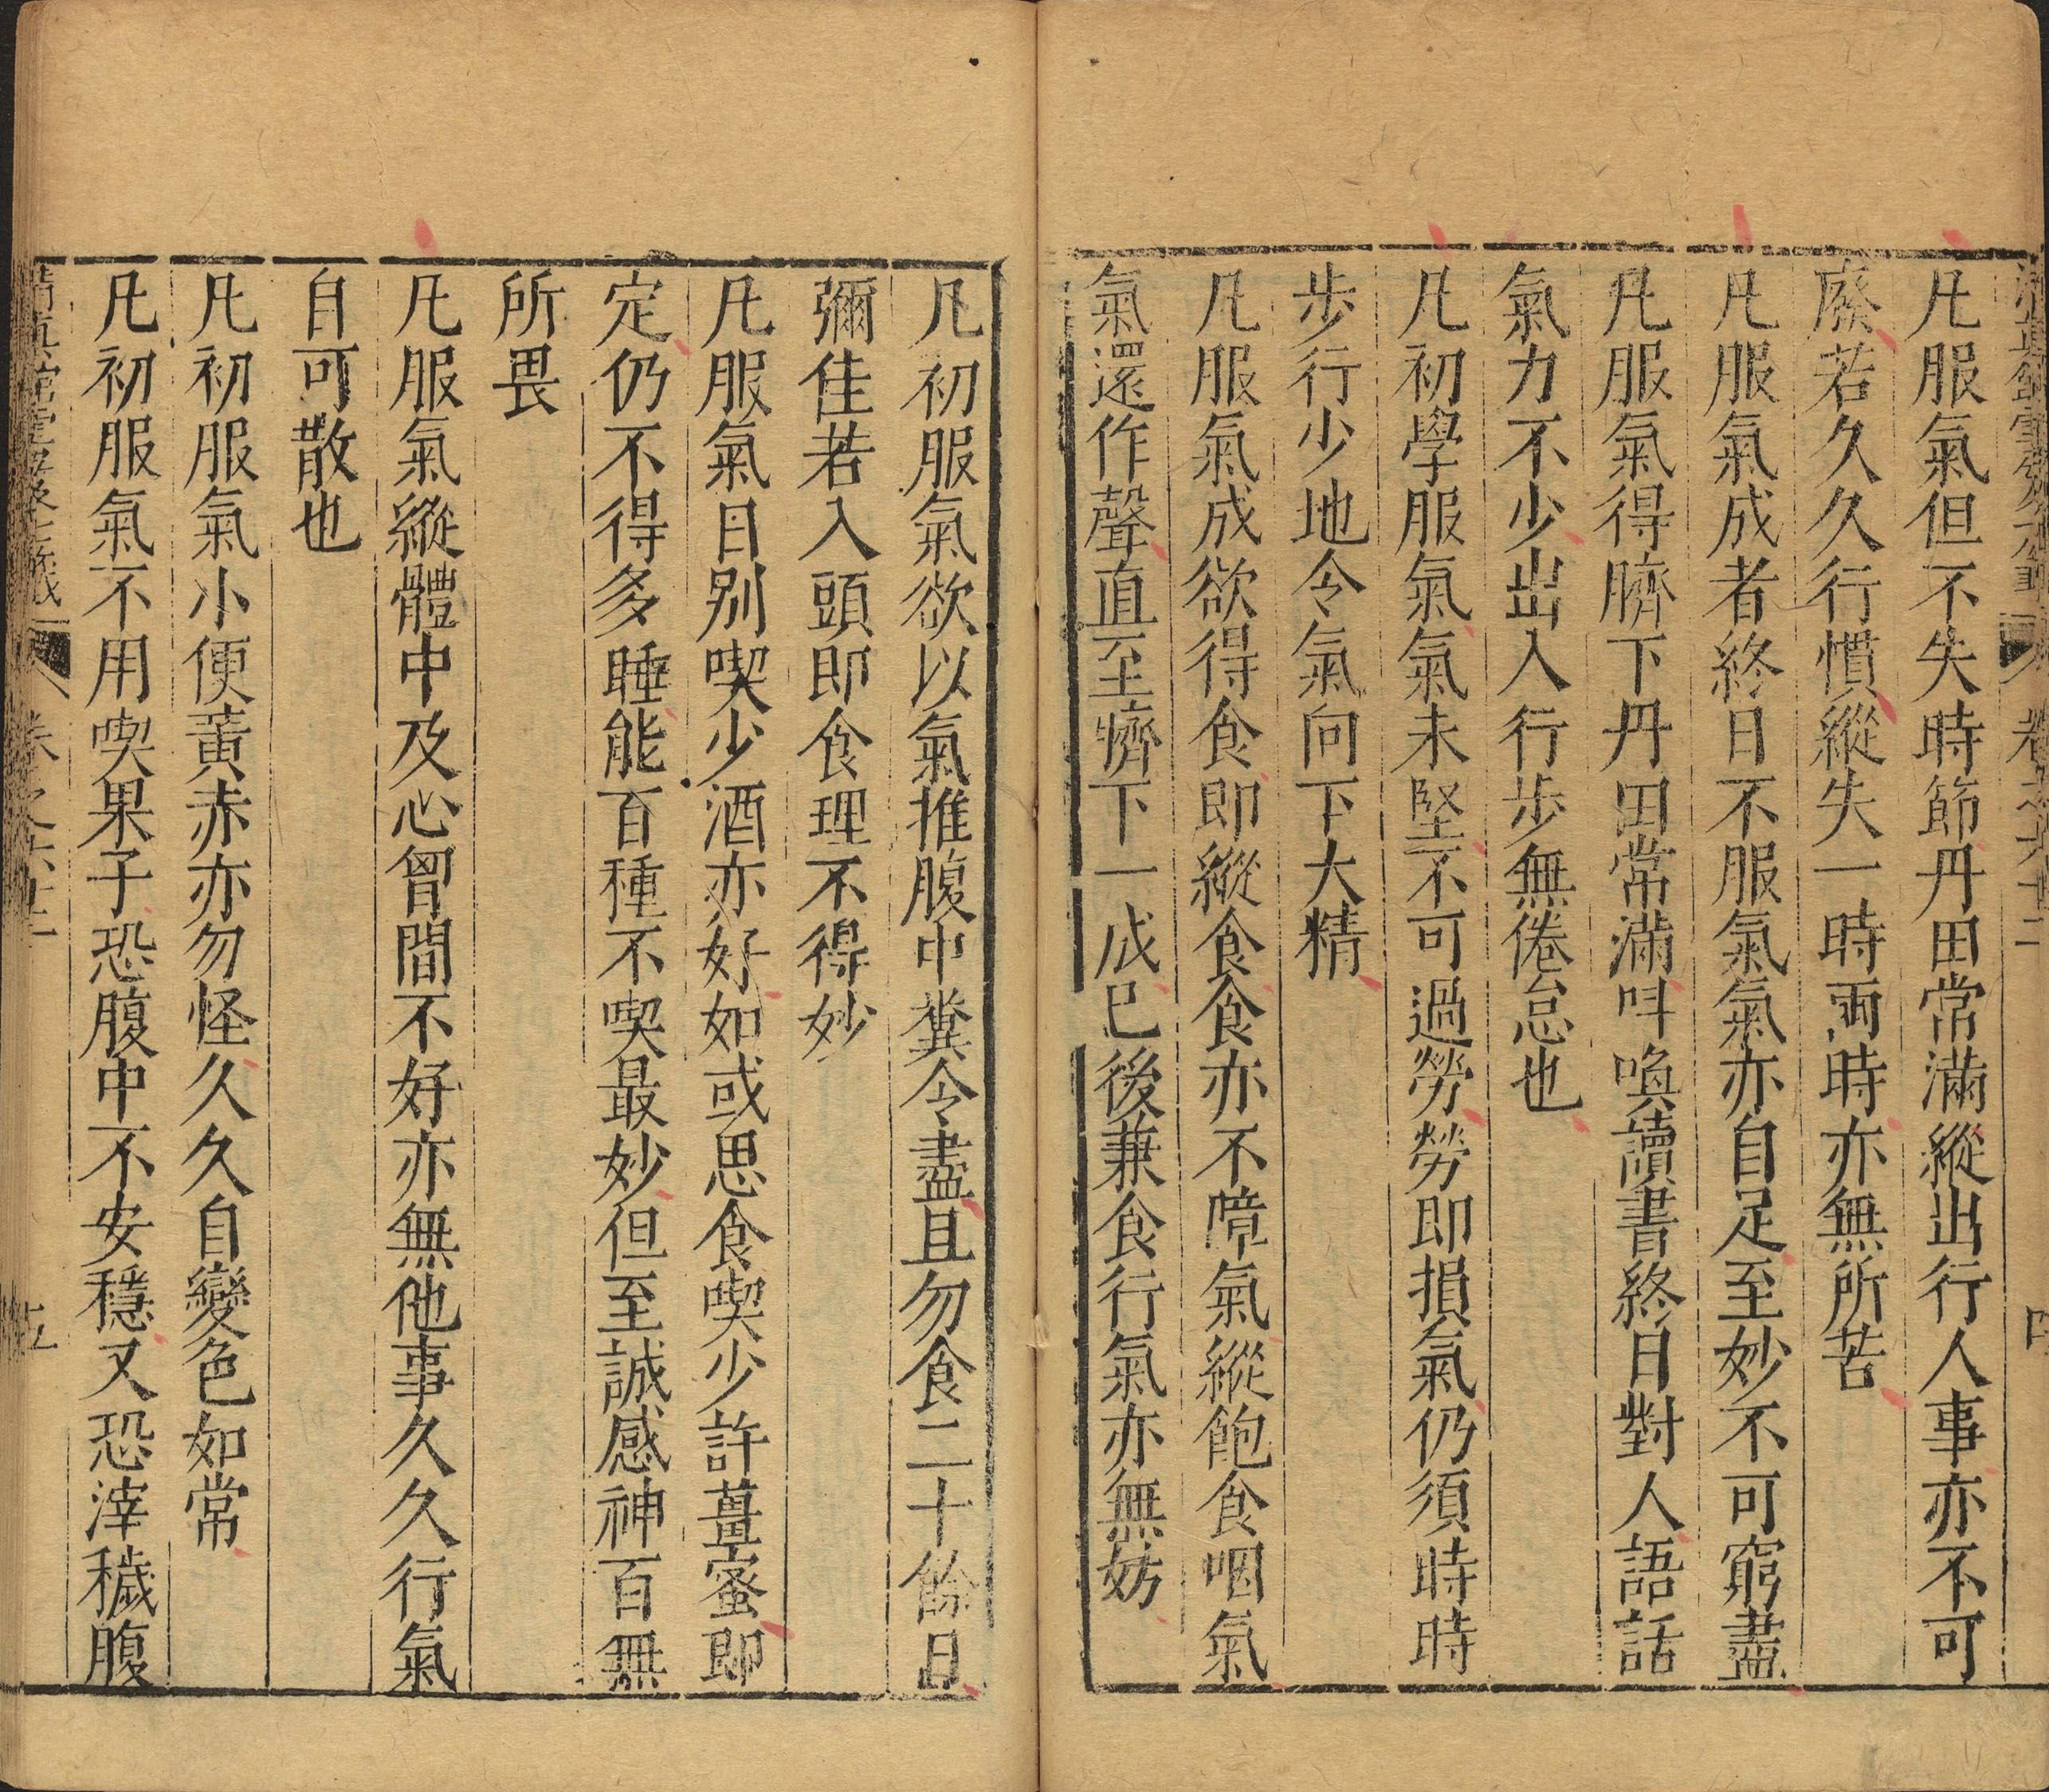 凡服氣但不失時節丹田常滿縱出行人事亦不可
廢若久久行慣縱失一時兩時亦無所苦
凡服氣成者終日不服氣氣亦自足至妙不可窮盡
凡服氣得臍下丹田常滿呌喚讀書終日對人語話
氣力不少出入行步無倦怠也
凡初學服氣氣未堅不可過勞勞即損氣仍須時時
步行少地令氣向下大精
凡服氣成欲得食即縱食食亦不噫氣縱飽食咽氣
氣還作聲直至臍下一成已後兼食行氣亦無妨
凡初服氣欲以氣推腹中糞令盡且勿食二十餘日
彌佳若入頭即食理不得妙
凡服氣日別喫少酒亦好如或思食喫少許薑蜜即
定仍不得多睡能百種不喫最妙但至誠感神百無
所畏
凡服氣縱體中及心胷間不好亦無他事久久行氣
自可散也
凡初服氣小便黃赤亦勿怪久久自變色如常
凡初服氣不用喫果子恐腹中不安穩又恐滓穢腹